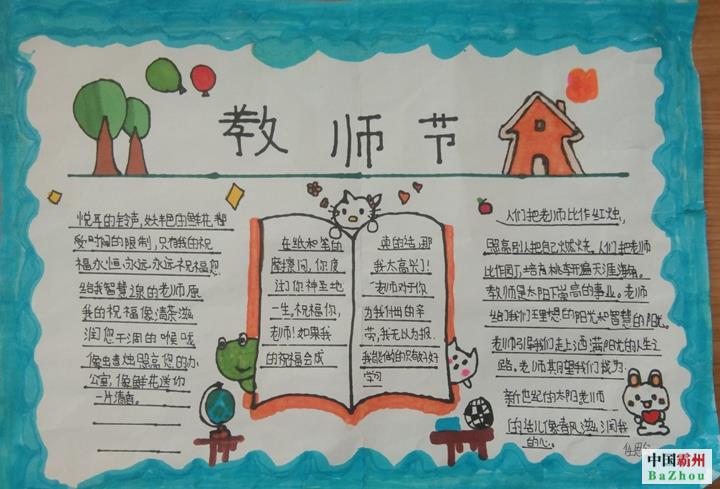 教师节
悦耳的铃声,妖艳的鲜花,都
受时间的限制,只有我的祝
福永恒,永远,永远祝福您
给我智慧泉的老师愿
我的祝福像清茶滋
润您干涸的喉咙
像虫青烛照亮您的办
公室,像鲜花送你
一片清南。
在纸和笔的
摩擦间,你度
过了你神圣地
一生,祝福你,
老师!如果我
的祝福会成
真的话,那
我太高兴了!
老师对于你
为我付出的辛
劳,我无以为报,
我能做的只有好好
学习
人们把老师比作红烛,
照亮别人把自己燃烧。人们把老师
比作园丁,培育桃李开遍天涯海角。
教师是太阳下崇高的事业。老师
给我们理想的阳光和智慧的阳光。
老师引导我们走上洒满阳光的人生之
路。老师期望我们成为
新世纪的太阳老师
的话儿像春风滋润我
的心。
中国霸州
BaZhou